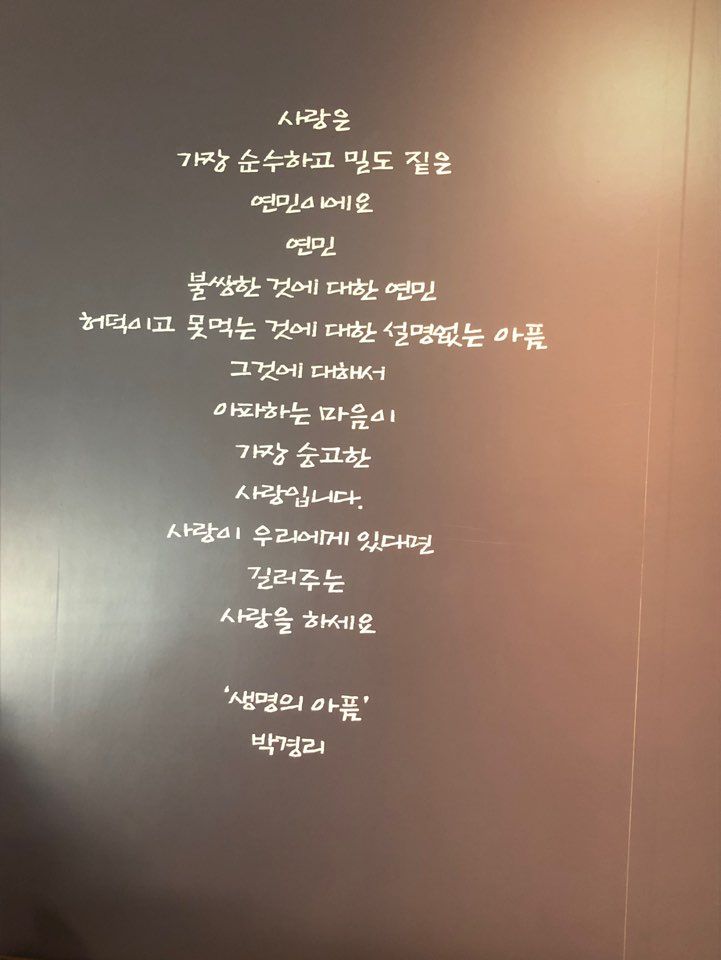 사랑은
가장 순수하고 밀도 짙은
연민이에요
연민
불쌍한 것에 대한 연민
허덕이고 못먹는 것에 대한 설명없는 아픔
그것에 대해서
아파하는 마음이
가장 숭고한
사랑입니다.
사랑이 우리에게 있다면
길러주는
사랑을 하세요
'생명의 아픔'
박경리